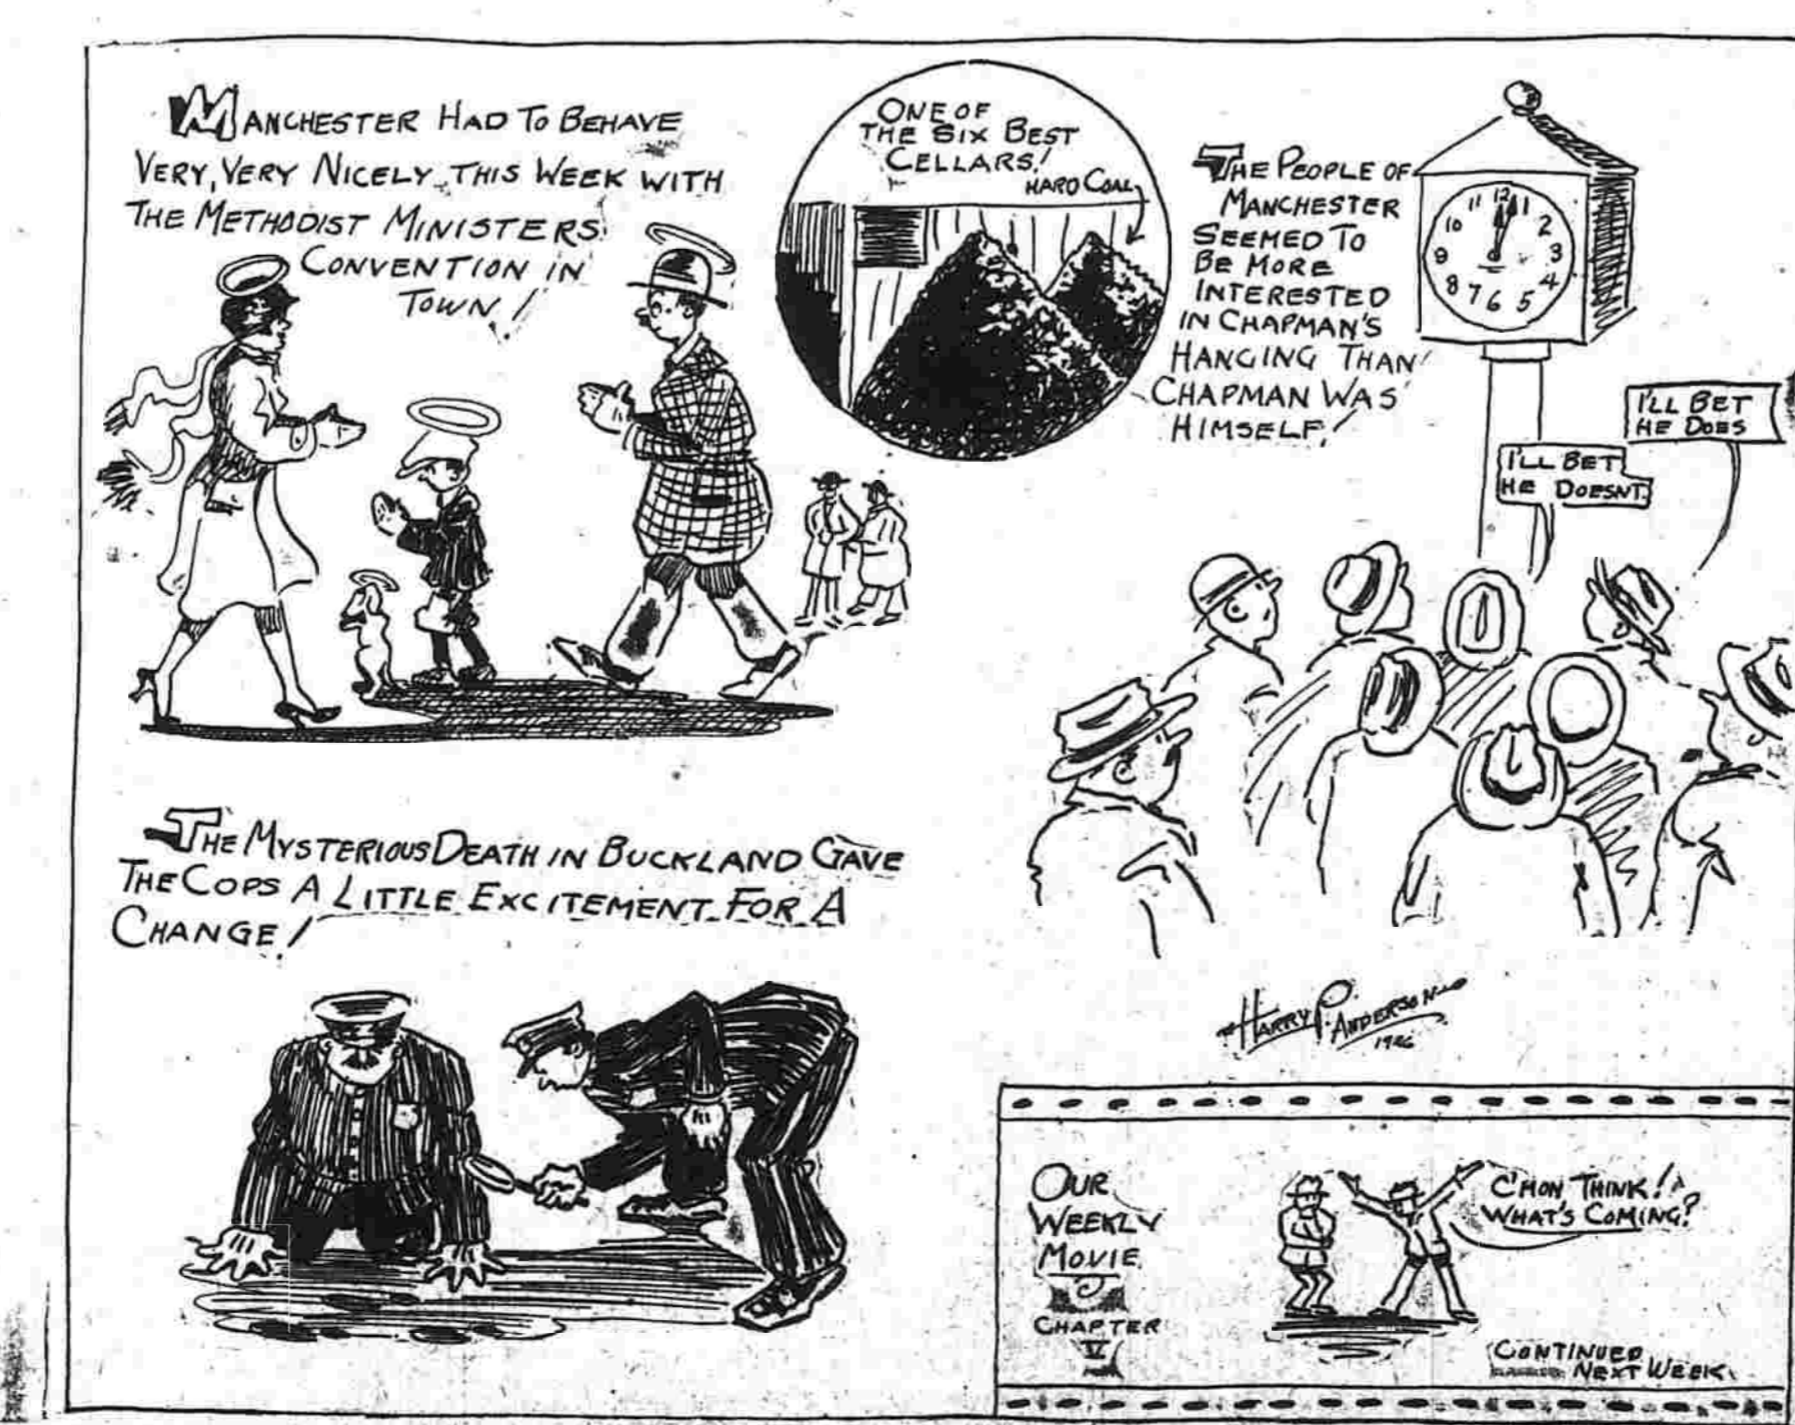 MANCHESTER HAD TO BEHAVE
VERY, VERY NICELY THIS WEEK WITH
THE METHODIST MINISTERS
CONVENTION IN
TOWN!
ONE OF
THE SIX BEST
CELLARS!
HARD COAL
THE PEOPLE OF
MANCHESTER
SEEMED TO
BE MORE
INTERESTED
IN CHAPMAN'S
HANGING THAN
CHAPMAN WAS
HIMSELF!
12
11 1
10 2
9 3
8 4
7 6 5
I'LL BET
HE DOES
I'LL BET
HE DOESNT.
THE MYSTERIOUS DEATH IN BUCKLAND GAVE
THE COPS A LITTLE EXCITEMENT FOR A
CHANGE!
HARRY P. ANDERSON
1926
OUR
WEEKLY
MOVIE
CHAPTER
V
C'MON THINK!
WHAT'S COMING?
CONTINUED
NEXT WEEK.